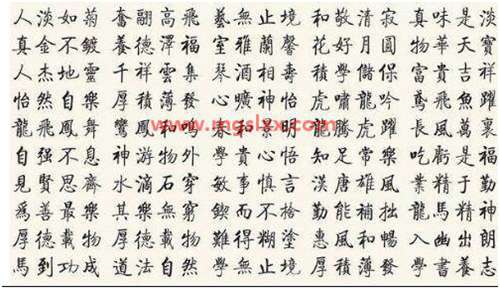 人淡如菊 奮翮高飛 藝無止境 和敬清寂 真味是淡
真金不鍍 養德澤福 室雅蘭馨 花好月圓 物華天寶
人杰地靈 千祥雲集 琴酒相壽 積學儲保 富貴吉祥
怡然自樂 厚積薄發 心曠神怡 虎嘯龍吟 鳶飛魚躍
www.mgslzx.com
龍飛鳳舞 鸞鳳和鳴 春和景明 龍騰虎躍 長風萬裏
自强不息 神游物外 學貴心悟 知足常樂 吃虧是福
見賢思齊 水滴石穿 敏事慎言 漢唐雄風 業精于勤
爲善最樂 其樂無窮 鍥而不捨 勤能補拙 龍馬精神
厚德載物 厚德載物 難得糊塗 惠風和暢 入幽出朗
馬到功成 道法自然 學無止境 厚積薄發 學書養志